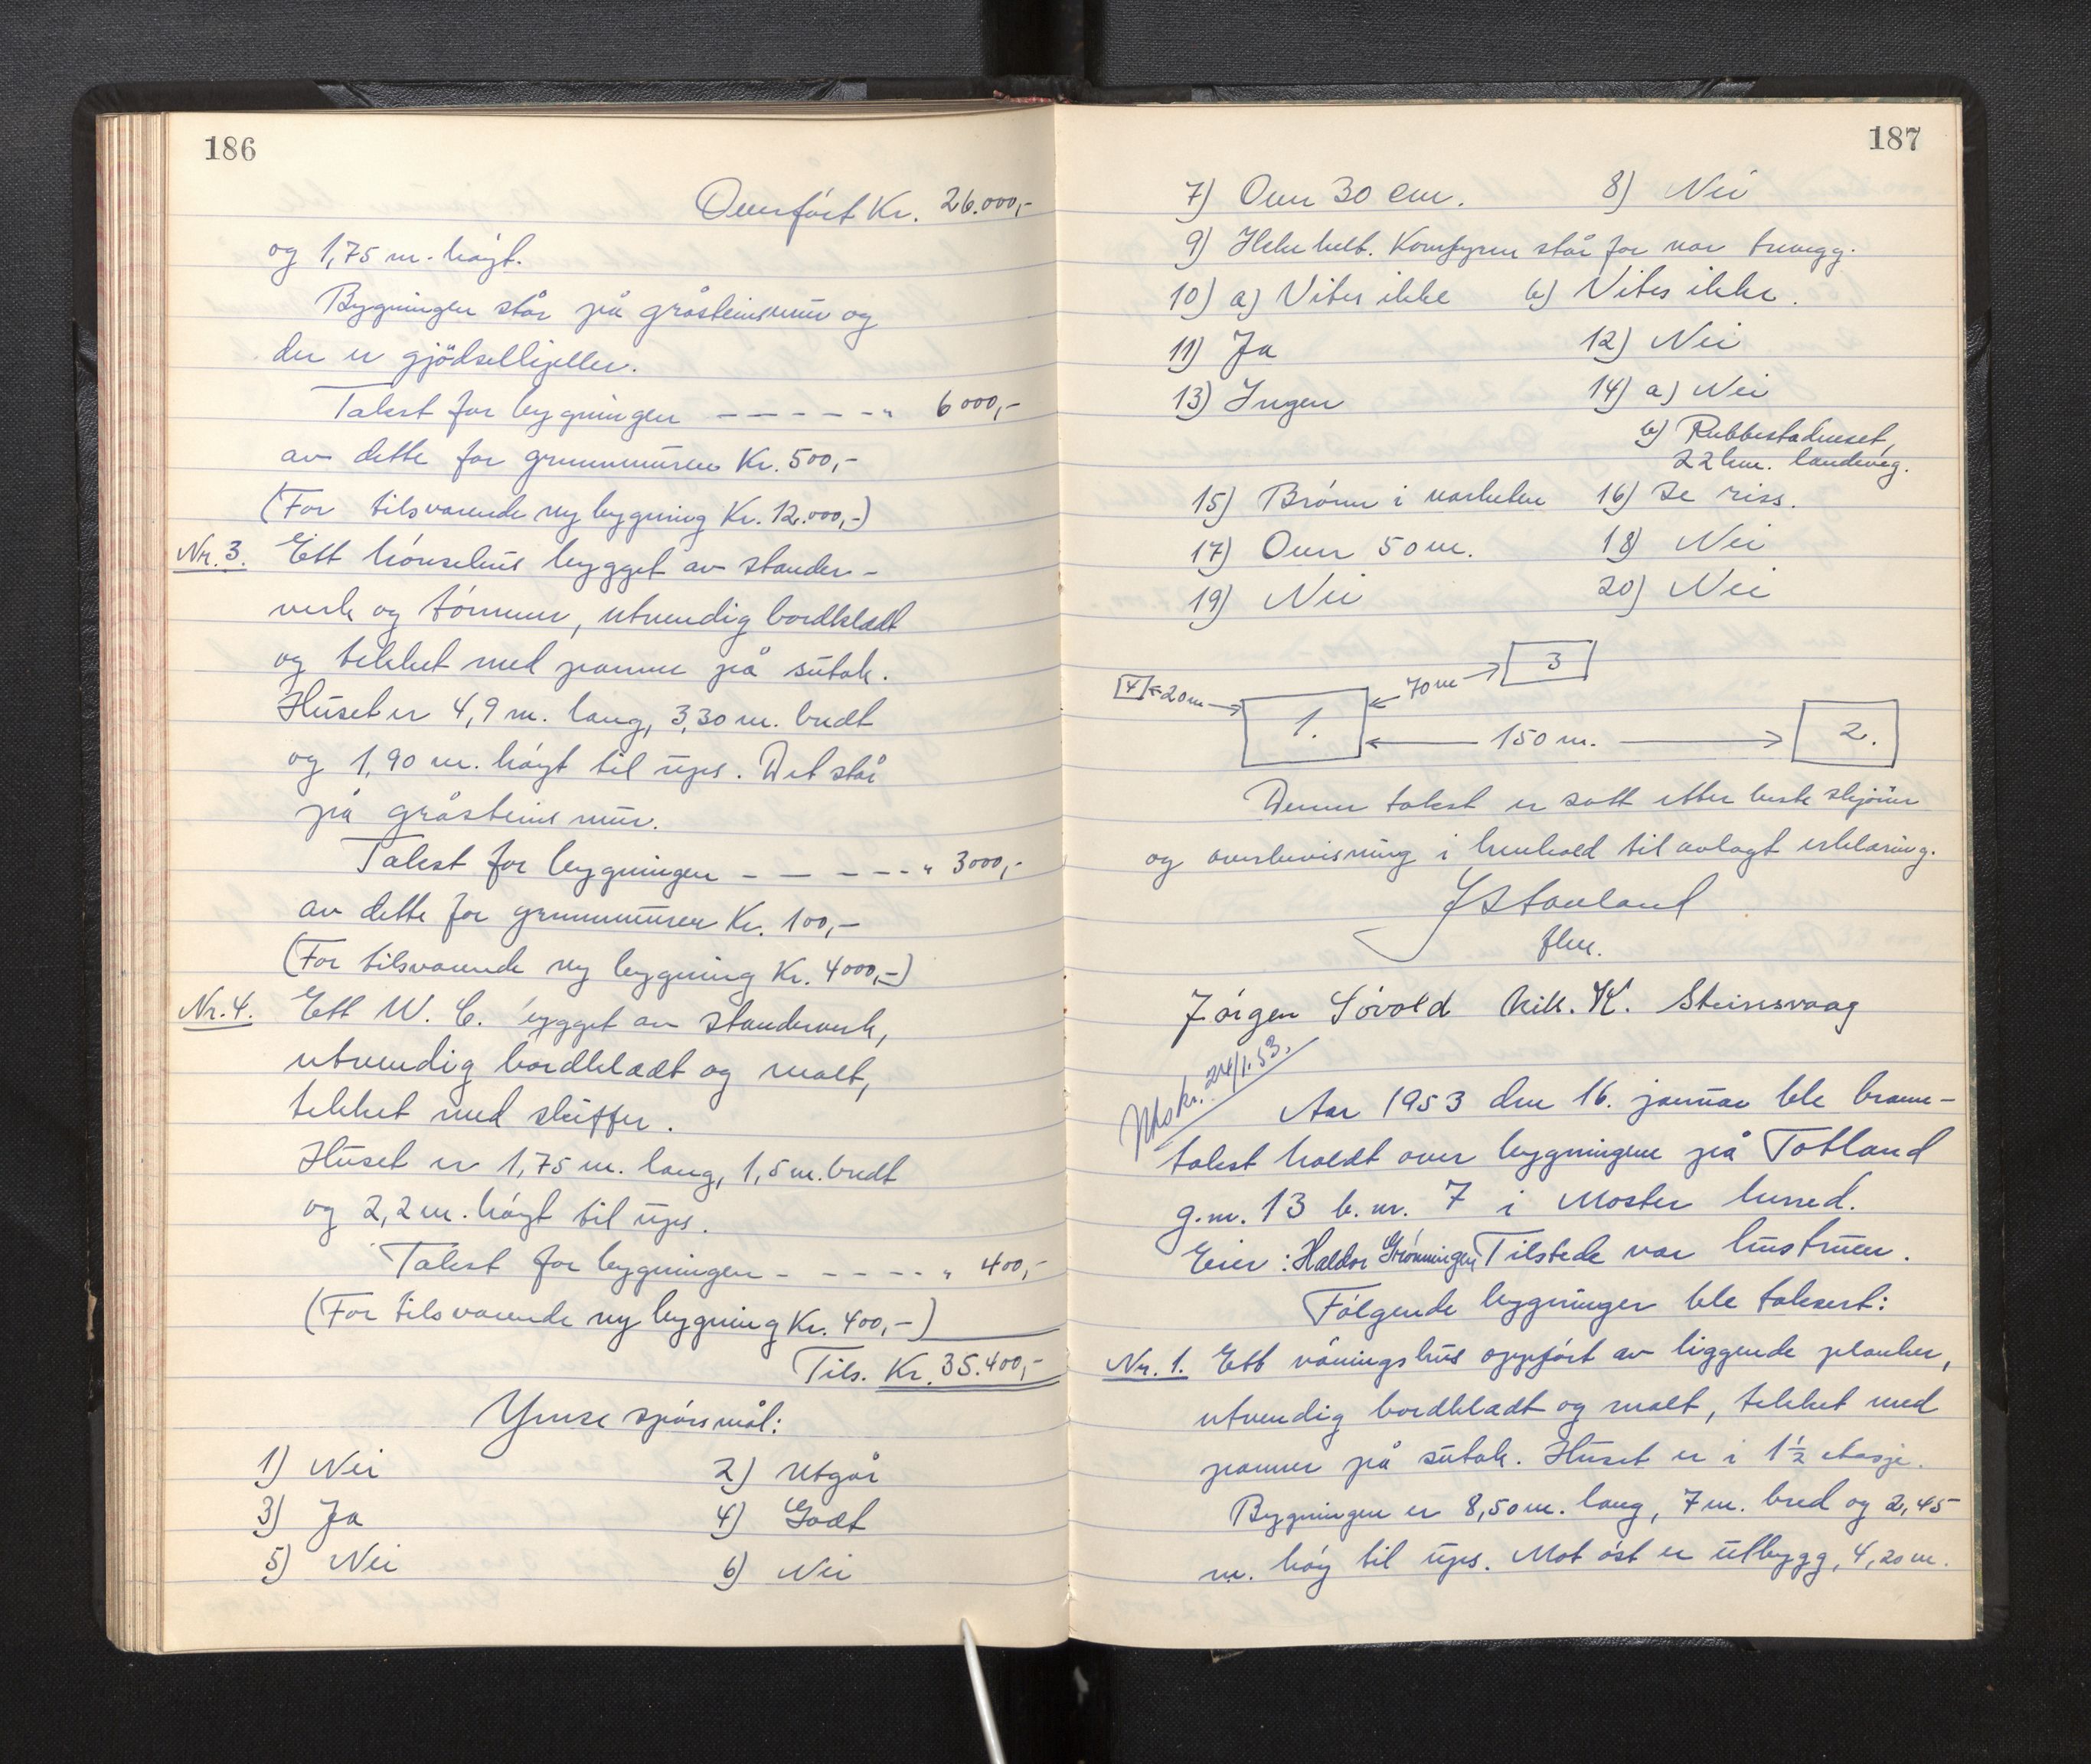 186
Overført Kr. 26.000,-
og 1,75 m. høgt.
Bygningen står på gråsteinsmur og
der er gjødselkjeller.
Takst for bygningen - - - - - - " 6000,-
av dette for grunnmuren Kr. 500,-
(For tilsvarende ny bygning Kr. 12.000,-)
Nr. 3. Ett hønsehus bygget av stander-
verk og tømmer, utvendig bordkledt
og tekket med panner på sutak.
Huset er 4,9 m. lang, 3,30 m. bredt
og 1,90 m. høgt til ups. Det står
på gråsteins mur.
Takst for bygningen - - - - - - " 3000,-
av dette for grunnmuren Kr. 100,-
(For tilsvarende ny bygning Kr. 4000,-)
Nr. 4. Ett W. C. bygget av standerverk,
utvendig bordkledt og malt,
tekket med skiffer.
Huset er 1,75 m. lang, 1,5 m. bredt
og 2,2 m. høgt til ups.
Takst for bygningen - - - - - " 400,-
(For tilsvarende ny bygning Kr. 400,-)
Tils. Kr. 35.400,-
Ymse spørsmål:
1) Nei 2) Utgår
3) Ja 4) Godt
5) Nei 6) Nei
187
7) Over 30 cm. 8) Nei
9) Helu helt. Komfyren står for nær trevegg.
10) a) Vites ikke b) Vites ikke.
11) Ja 12) Nei
13) Ingen 14) a) Nei
b) Rubbestadneset,
22 km. landeveg.
15) Brønn i nærheten 16) Se riss.
17) Over 50 m. 18) Nei
19) Nei 20) Nei
3
4 20m 70m
1. 150 m. 2.
Denne takst er satt etter beste skjønn
og overbevisning i henhold til avlagt erklæring.
Stavland
flm.
Jørgen Søvold Nils. K. Steinsvaag
Utskr. 24/1.53.
Aar 1953 den 16. januar ble brann-
takst holdt over bygningene på Totland
g.nr. 13 b.nr. 7 i Moster herred.
Eier: Haldor Grønningen Tilstede var hustruen.
Følgende bygninger ble taksert:
Nr. 1. Ett våningshus oppført av liggende planker,
utvendig bordkledt og malt, tekket med
panner på sutak. Huset er i 1½ etasje.
Bygningen er 8,50 m. lang, 7 m. bred og 2,45
m. høg til ups. Mot øst er utbygg, 4,20 m.